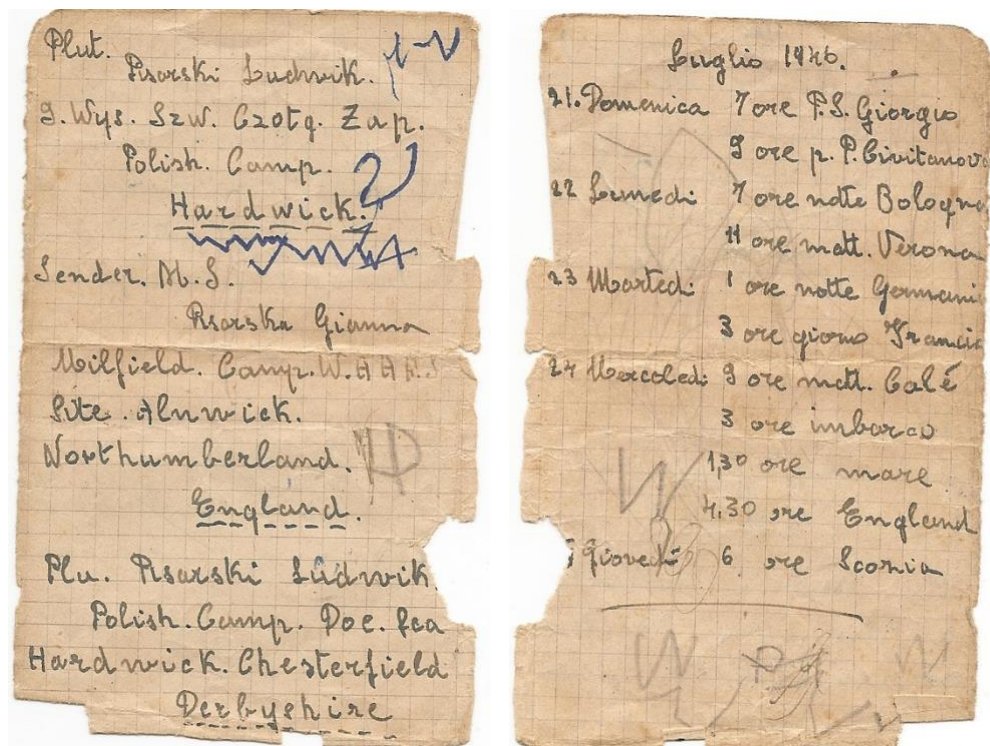 Plut.
Pisarski Ludwik.
S. Wys. Szw. Czołg. Zap.
Polish. Camp.
Hardwick.
Sender. M. S.
Pisarska Gianna
Milfield. Camp. W.A.A.F.S
Site. Alnwick.
Northumberland.
England.
Plu. Pisarski Ludwik
Polish. Camp. Doe. Lea
Hardwick. Chesterfield
Derbyshire
Luglio 1946.
21. Domenica 7 ore P.S. Giorgio
9 ore p. P. Civitanova
22 Lunedi 7 ore notte Bologna
11 ore matt. Verona
23 Martedi 1 ore notte Germani
3 ore giorno Francia
24 Mercoledi 9 ore matt. Calé
3 ore imbarco
1,30 ore mare
4,30 ore England
Giovedi 6 ore Scozia